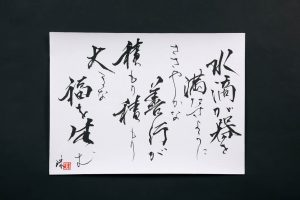 水滴が器を
満たすように
ささやかな
善行が
積もり積もり
大きな
福を生む